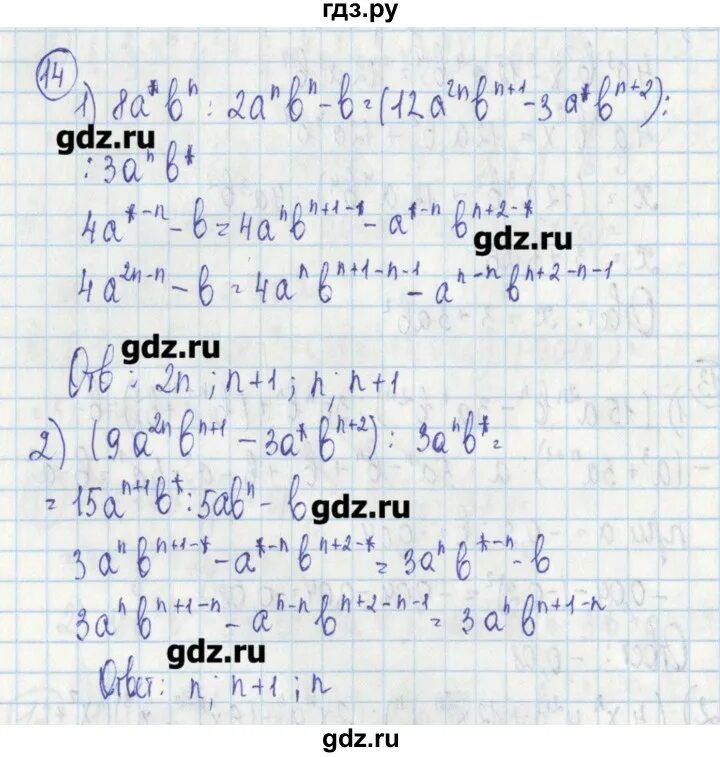 гдз.ру
14
1) 8a^* b^n : 2a^n b^n - b = (12a^{2n} b^{n+1} - 3a^* b^{n+2}) :
gdz.ru
: 3a^n b^*
4a^{*-n} - b = 4a^n b^{n+1-*} - a^{*-n} b^{n+2-*}
gdz.ru
4a^{2n-n} - b = 4a^n b^{n+1-n-1} - a^{n-n} b^{n+2-n-1}
gdz.ru
Отв: 2n; n+1; n; n+1
2) (9a^{2n} b^{n+1} - 3a^* b^{n+2}) : 3a^n b^* =
= 15a^{n+1} b^* : 5ab^n - b
gdz.ru
3a^n b^{n+1-*} - a^{*-n} b^{n+2-*} = 3a^n b^{*-n} - b
3a^n b^{n+1-n} - a^{n-n} b^{n+2-n-1} = 3a^n b^{n+1-n}
gdz.ru
Ответ: n; n+1; n
gdz.ru